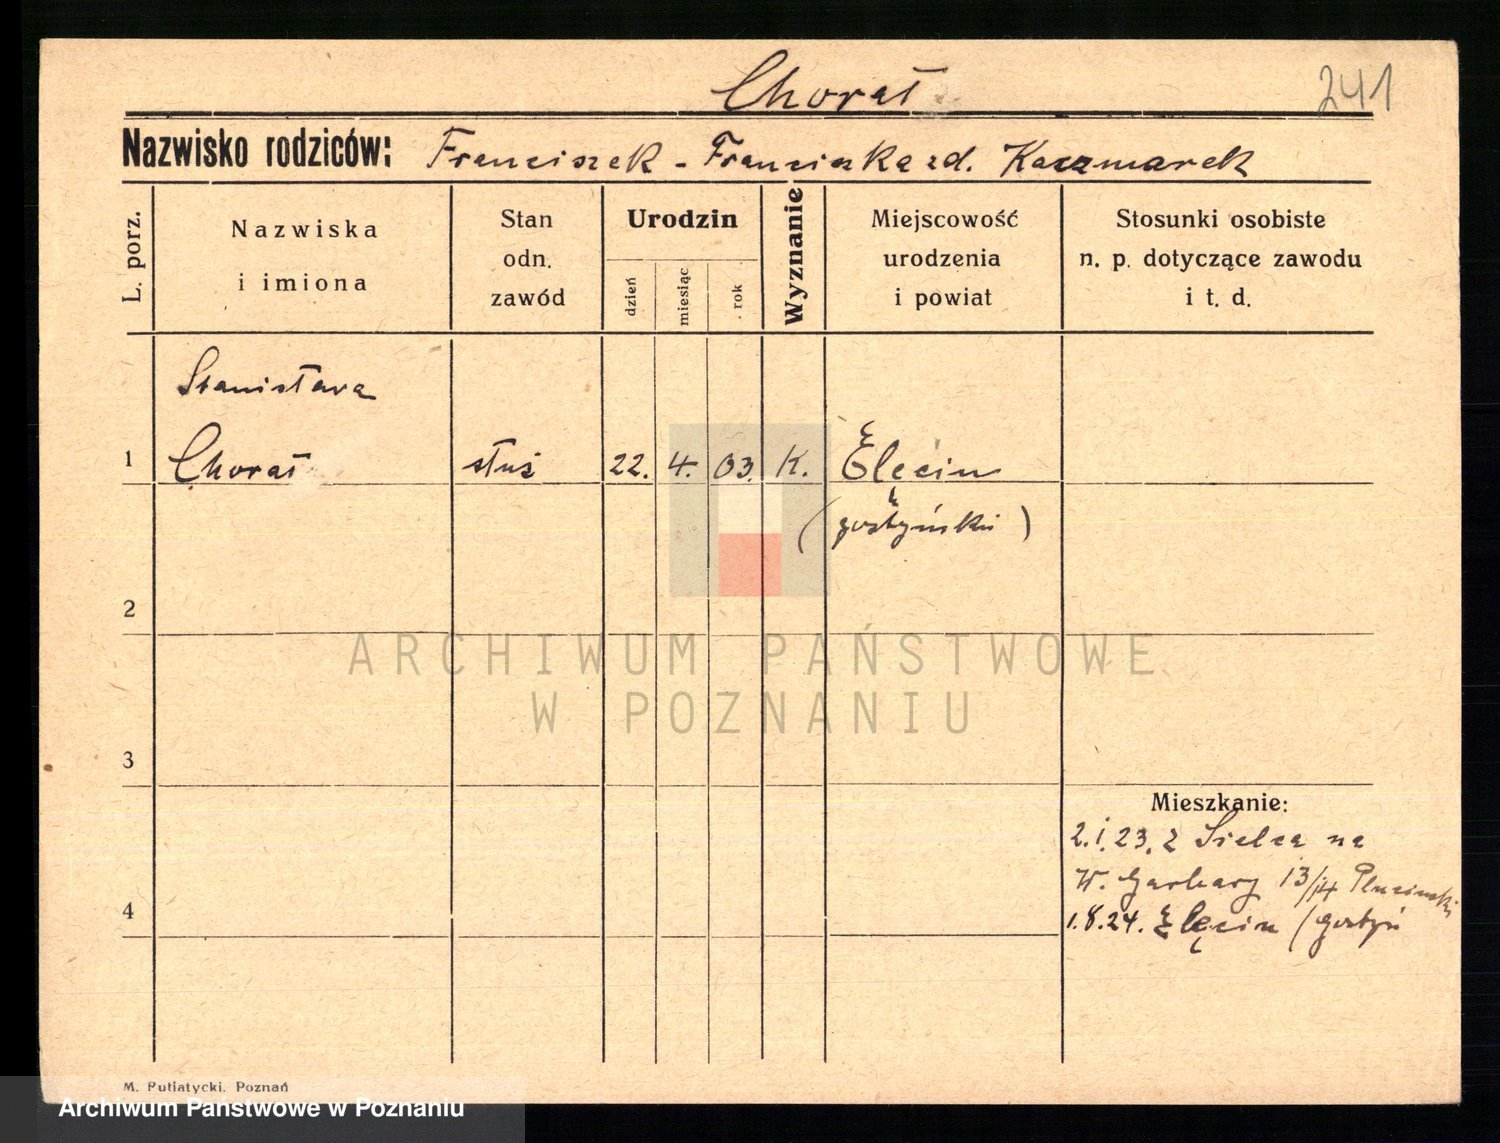 Chorał
241
Nazwisko rodziców: Franciszek - Franciszka zd. Kaczmarek
L. porz.
Nazwiska
i imiona
Stan
odn.
zawód
Urodzin
dzień
miesiąc
rok
Wyznanie
Miejscowość
urodzenia
i powiat
Stosunki osobiste
n. p. dotyczące zawodu
i t. d.
Stanisława
1 Chorał służ 22. 4. 03. K. Elęcin
(gostyński)
2
ARCHIWUM PAŃSTWOWE
W POZNANIU
3
Mieszkanie:
2.1.23. z Sielca na
W. Garbary 13/14 Pluciński
4 1.8.24. Elęcin (Gostyń
M. Putiatycki. Poznań
Archiwum Państwowe w Poznaniu